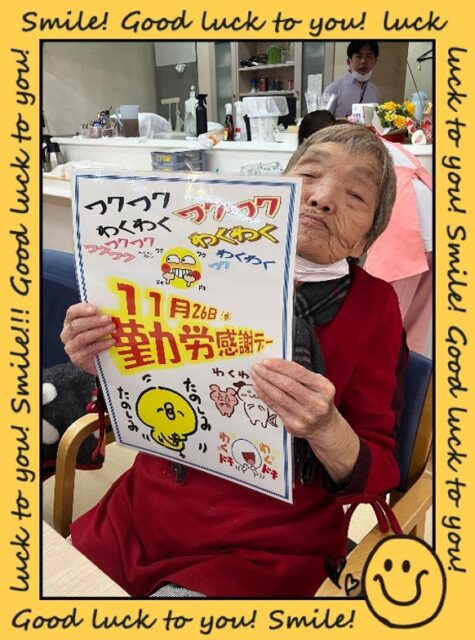 Smile! Good luck to you! luck
luck to you! Smile!!! Good luck to you!
luck to you! Smile! Good luck to you!
ワクワク
わくわく
ワクワク
わくわく
ワクワク
ワクワク
わくわく
ワク
ドキ
ドキ
11月26日(水)
勤労感謝デー
たのしみ
たのしみ
わくわく
わくわく
ドキドキ
Good luck to you! Smile!